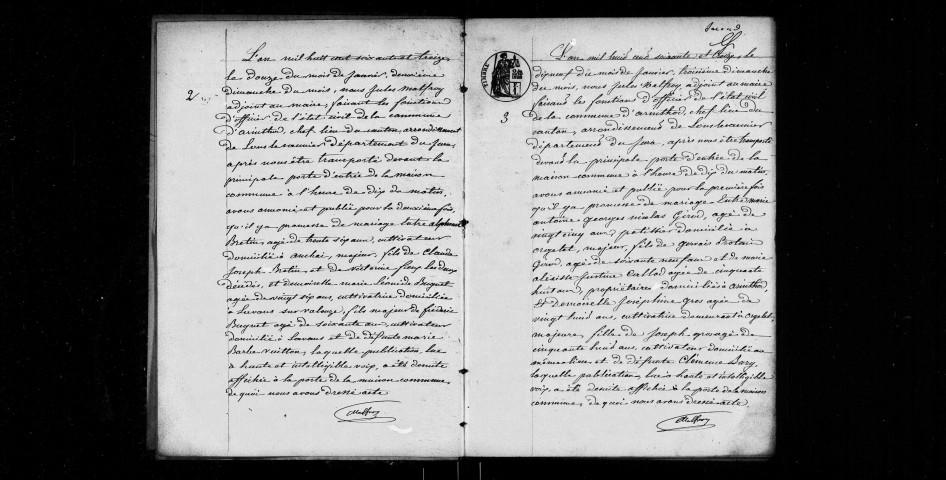 2
L'an mil huit cent soixante et treize
le douze du mois de janvier, deuxième
dimanche du mois, nous Jules Malfroy
adjoint au maire, faisant les fonctions
d'officier de l'état civil de la commune
d'arinthod, chef lieu du canton, arrondissement
de Lons le saunier département du Jura,
après nous être transporté devant la
principale porte d'entrée de la maison
commune à l'heure de dix du matin,
avons annoncé et publié pour la deuxième fois,
qu'il y a promesse de mariage entre alphonse
âgé de trente six ans, cultivateur
domicilié à anchay, majeur, fils de Claude
Joseph et de victorine les deux
décédés, et demoiselle marie léonide Buguet
agée de vingt six ans, cultivatrice domiciliée
à Lavans sur valouze, fille majeure de fréderic
Buguet agé de soixante ans, cultivateur
domicilié à Lavans et de défunte marie
laquelle publication, lue
à haute et intelligible voix, a été ensuite
affichée à la porte de la maison commune,
de quoi nous avons dressé acte
Malfroy
Second
TIMBRE
3
L'an mil huit cent soixante et treize, le
dix neuf du mois de janvier, troisième dimanche
du mois, nous Jules Malfroy, adjoint au maire
faisant les fonctions d'officier de l'état civil
de la commune d'arinthod, chef lieu du
canton, arrondissement de Lons le saunier
département du Jura, après nous être transporté
devant la principale porte d'entrée de la
maison commune à l'heure de dix du matin,
avons annoncé et publié pour la première fois
qu'il y a promesse de mariage entre marie
antoine Georges nicolas Girod, agé de
vingt cinq ans, patissier domicilié à
orgelet, majeur, fils de gervais
Girod, agé de soixante neuf ans et de marie
justine agée de cinquante
huit ans, propriétaires domiciliés à arinthod
Et Demoiselle Joséphine gros agée de
vingt huit ans, cultivatrice demeurant à orgelet
majeure, fille de Joseph gros agé de
cinquante huit ans, cultivateur domicilié au
même lieu et de défunte Clémence
laquelle publication, lue à haute et intelligible
voix, a été ensuite affichée à la porte de la maison
commune, de quoi nous avons dressé acte.
Malfroy